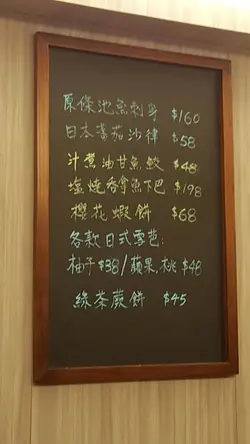 原條池魚刺身 $160
日本蕃茄沙律 $58
汁煮油甘魚鮫 $48
塩燒吞拿魚下巴 $198
櫻花蝦餅 $68
各款日式雪芭:
柚子$38/蘋果,桃 $48
綠茶蕨餅 $45